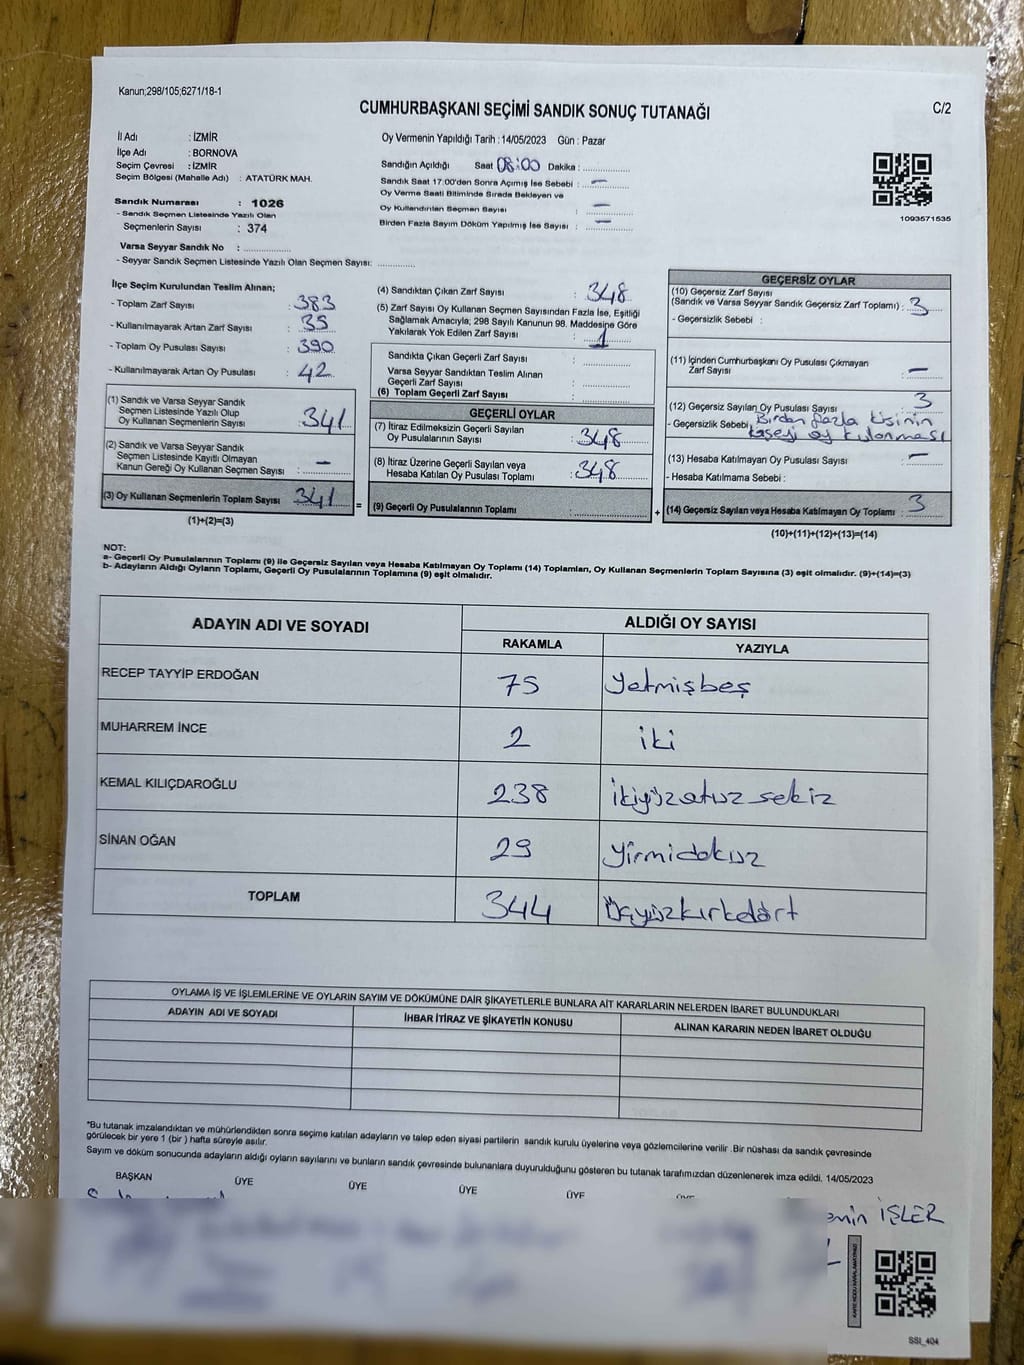 Kanun;298/105;6271/18-1
CUMHURBAŞKANI SEÇİMİ SANDIK SONUÇ TUTANAĞI
C/2
İl Adı : İZMİR
İlçe Adı : BORNOVA
Seçim Çevresi : İZMİR
Seçim Bölgesi (Mahalle Adı) : ATATÜRK MAH.
Sandık Numarası : 1026
- Sandık Seçmen Listesinde Yazılı Olan
Seçmenlerin Sayısı : 374
Varsa Seyyar Sandık No :
- Seyyar Sandık Seçmen Listesinde Yazılı Olan Seçmen Sayısı:
Oy Vermenin Yapıldığı Tarih : 14/05/2023 Gün : Pazar
Sandığın Açıldığı Saat 08:00 Dakika :
Sandık Saat 17:00'den Sonra Açılmış İse Sebebi : —
Oy Verme Saati Bitiminde Sırada Bekleyen ve
Oy Kullandırılan Seçmen Sayısı : —
Birden Fazla Sayım Döküm Yapılmış İse Sayısı : —
1093571535
İlçe Seçim Kurulundan Teslim Alınan;
- Toplam Zarf Sayısı : 383
- Kullanılmayarak Artan Zarf Sayısı : 35
- Toplam Oy Pusulası Sayısı : 390
- Kullanılmayarak Artan Oy Pusulası : 42
(1) Sandık ve Varsa Seyyar Sandık
Seçmen Listesinde Yazılı Olup
Oy Kullanan Seçmenlerin Sayısı : 341
(2) Sandık ve Varsa Seyyar Sandık
Seçmen Listesinde Kayıtlı Olmayan
Kanun Gereği Oy Kullanan Seçmen Sayısı : —
(3) Oy Kullanan Seçmenlerin Toplam Sayısı 341
(1)+(2)=(3)
=
(4) Sandıktan Çıkan Zarf Sayısı : 348
(5) Zarf Sayısı Oy Kullanan Seçmen Sayısından Fazla İse, Eşitliği
Sağlamak Amacıyla; 298 Sayılı Kanunun 98. Maddesine Göre
Yakılarak Yok Edilen Zarf Sayısı : 1
Sandıkta Çıkan Geçerli Zarf Sayısı :
Varsa Seyyar Sandıktan Teslim Alınan
Geçerli Zarf Sayısı :
(6) Toplam Geçerli Zarf Sayısı :
GEÇERLİ OYLAR
(7) İtiraz Edilmeksizin Geçerli Sayılan
Oy Pusulalarının Sayısı : 348
(8) İtiraz Üzerine Geçerli Sayılan veya
Hesaba Katılan Oy Pusulası Toplamı : 348
(9) Geçerli Oy Pusulalarının Toplamı :
+
GEÇERSİZ OYLAR
(10) Geçersiz Zarf Sayısı
(Sandık ve Varsa Seyyar Sandık Geçersiz Zarf Toplamı) : 3
- Geçersizlik Sebebi :
(11) İçinden Cumhurbaşkanı Oy Pusulası Çıkmayan
Zarf Sayısı : —
(12) Geçersiz Sayılan Oy Pusulası Sayısı : 3
- Geçersizlik Sebebi : Birden fazla kişinin
kaşeyi oy kulanması
(13) Hesaba Katılmayan Oy Pusulası Sayısı : —
- Hesaba Katılmama Sebebi :
(14) Geçersiz Sayılan veya Hesaba Katılmayan Oy Toplamı : 3
(10)+(11)+(12)+(13)=(14)
NOT:
a- Geçerli Oy Pusulalarının Toplamı (9) ile Geçersiz Sayılan veya Hesaba Katılmayan Oy Toplamı (14) Toplamları, Oy Kullanan Seçmenlerin Toplam Sayısına (3) eşit olmalıdır. (9)+(14)=(3)
b- Adayların Aldığı Oyların Toplamı, Geçerli Oy Pusulalarının Toplamına (9) eşit olmalıdır.
ADAYIN ADI VE SOYADI
ALDIĞI OY SAYISI
RAKAMLA YAZIYLA
RECEP TAYYİP ERDOĞAN 75 Yetmişbeş
MUHARREM İNCE 2 iki
KEMAL KILIÇDAROĞLU 238 ikiyüzotuz sekiz
SİNAN OĞAN 29 Yirmidokuz
TOPLAM 344 Üçyüzkırkdört
OYLAMA İŞ VE İŞLEMLERİNE VE OYLARIN SAYIM VE DÖKÜMÜNE DAİR ŞİKAYETLERLE BUNLARA AİT KARARLARIN NELERDEN İBARET BULUNDUKLARI
ADAYIN ADI VE SOYADI İHBAR İTİRAZ VE ŞİKAYETİN KONUSU ALINAN KARARIN NEDEN İBARET OLDUĞU
*Bu tutanak imzalandıktan ve mühürlendikten sonra seçime katılan adayların ve talep eden siyasi partilerin sandık kurulu üyelerine veya gözlemcilerine verilir .Bir nüshası da sandık çevresinde
görülecek bir yere 1 (bir ) hafta süreyle asılır.
Sayım ve döküm sonucunda adayların aldığı oyların sayılarını ve bunların sandık çevresinde bulunanlara duyurulduğunu gösteren bu tutanak tarafımızdan düzenlenerek imza edildi. 14/05/2023
BAŞKAN ÜYE ÜYE ÜYE ÜYE ÜYE
emin İŞLER
SSI_404